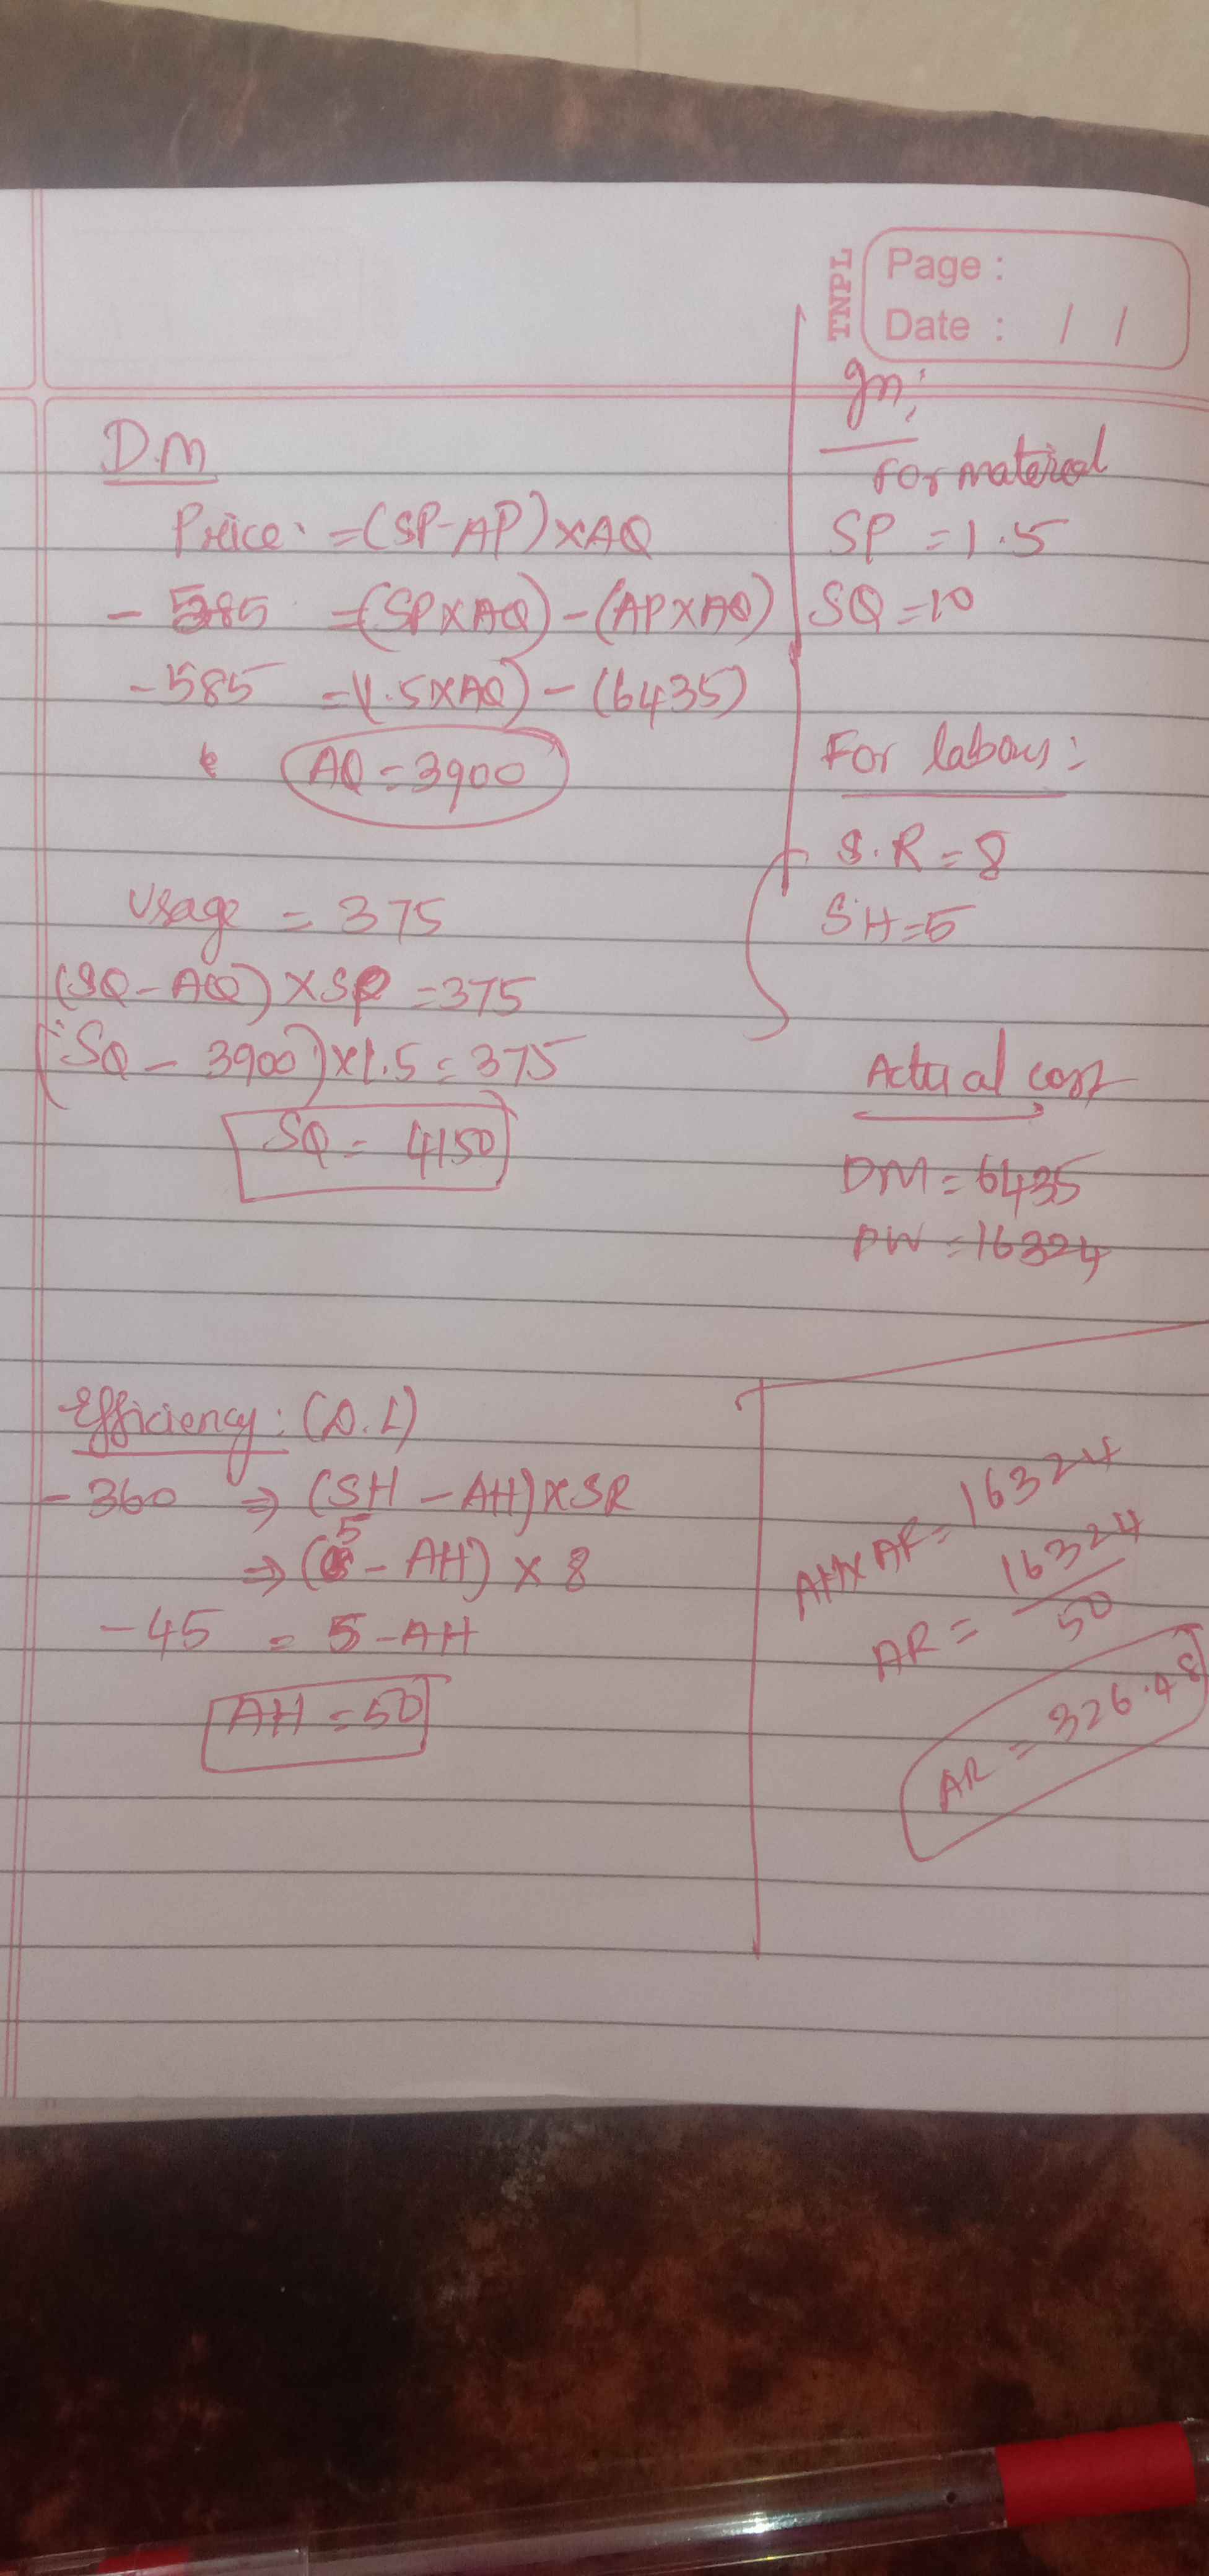 TNPL
Page :
Date : / /
D.M
Price: =(SP-AP)×AQ
- 585 =(SP×AQ)-(AP×AQ)
-585 =(1.5×AQ)-(6435)
AQ=3900
Usage = 375
(SQ-AQ)×SP=375
(SQ - 3900)×1.5=375
SQ= 4150
Efficiency: (D.L)
-360 ⇒ (SH -AH)×SR
⇒ (5 - AH) × 8
-45 = 5-AH
AH=50
gn:
For material
SP =1.5
SQ=10
For labour:
S.R=8
SH=5
Actual cost
DM=6435
DW=16324
AH×AR=16324
AR= 16324
50
AR = 326.48